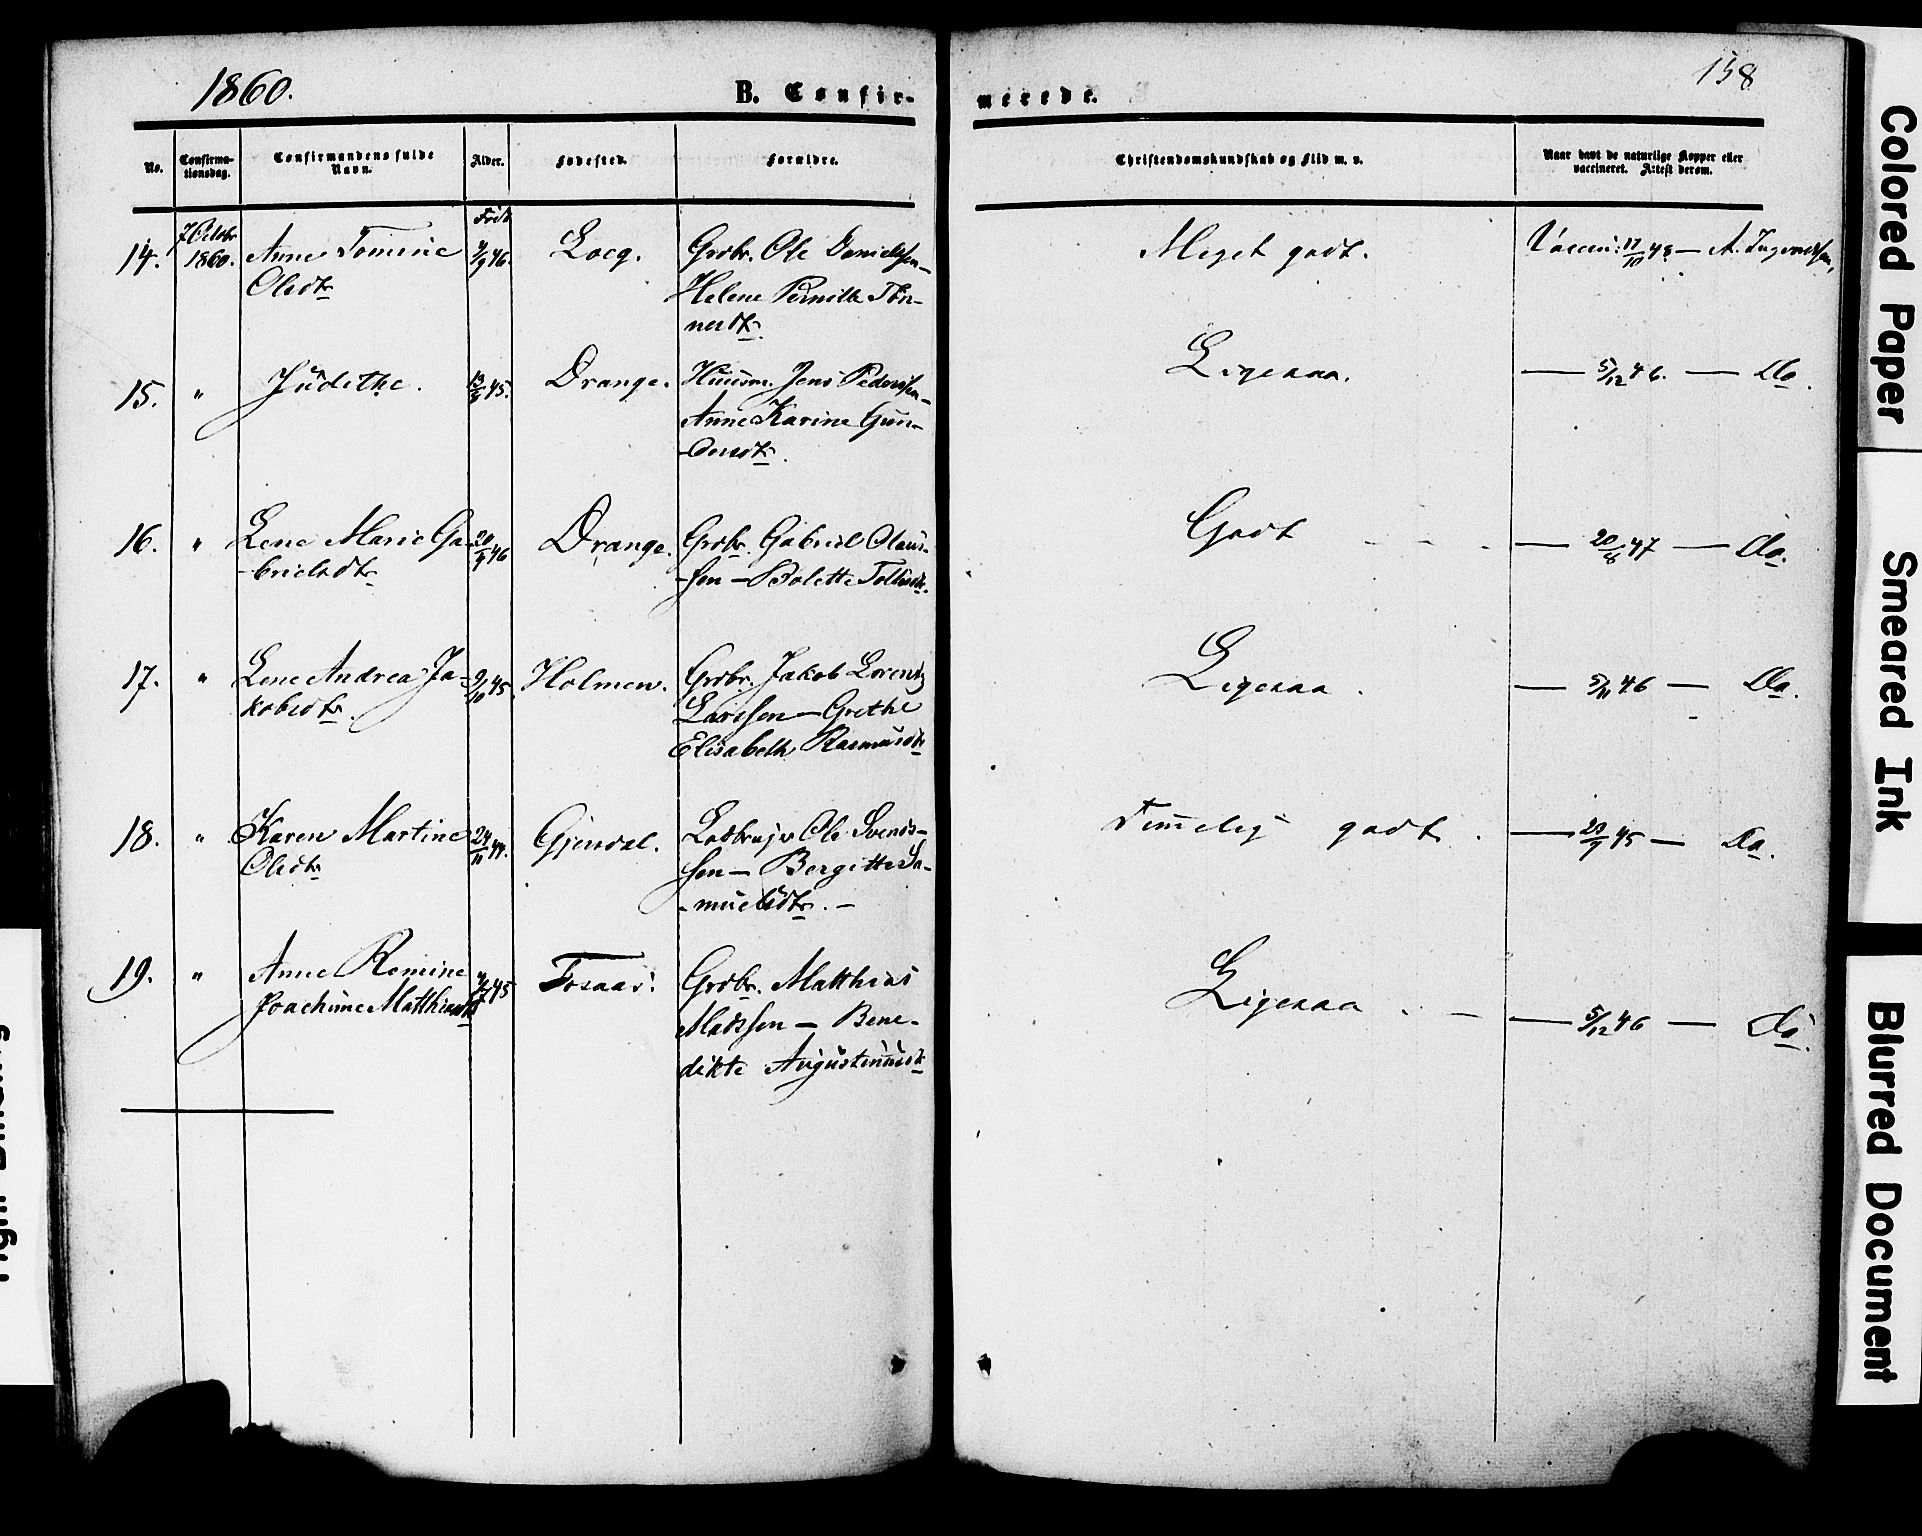 1860.
B. Confir-
merede.
158
No.
Confirma-
tionsdag.
Confirmandens fulde
Navn.
Alder.
Fødested.
Forældre.
Christendomskundskab og Flid m. v.
Naar havt de naturlige Kopper eller
vaccineret. Attest derom.
14.
7 Octobr
1860.
Anne Tomine
Olsdtr
Født
46.
Grdbr. Ole Danielsen –
Helene Pernille Tön-
nesdtr.
Meget godt.
Vaccin: 17/10 48 –
15.
"
Judithe.
45.
Drange.
Huusm. Jens Pedersen –
Anne Karine Gun-
Ligesaa.
— 5/12 46. — Do.
16.
"
Lene Marie Ga-
brielsdtr
46
Drange.
Grdbr. Gabriel Olaus-
sen – Bolette
Godt
— 20/6 47 — Do.
17.
"
Lene Andrea Ja-
kobsdtr.
9/10 45.
Holmen.
Grdbr. Jakob Lorentz
Larssen – Grethe
Elisabeth Rasmusdtr
Ligesaa.
— 5/11 46 — Do.
18.
"
Karen Martine
Olsdtr
24/11 44.
Gjersdal.
Ole Svends-
sen – Bergitte Sa-
muelsdtr. –
Temmelig godt.
— 45 — Do.
19.
"
Anne Romine
Joachime Matthiasdtr
45
Fosaas.
Grdbr. Matthias
Madssen – Bene-
dikte Augustinusdtr
Ligesaa. –
— 5/12 46 — Do.
Colored Paper
Smeared Ink
Blurred Document